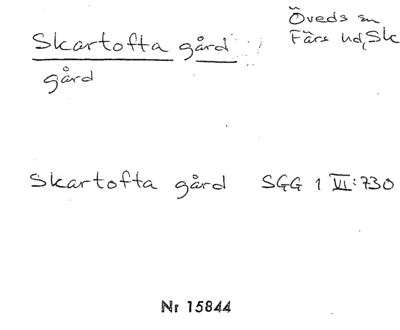 Skartofta gård
Öveds sn
Färs hd, Sk
gård
Skartofta gård SGG 1 VI:730
Nr 15844